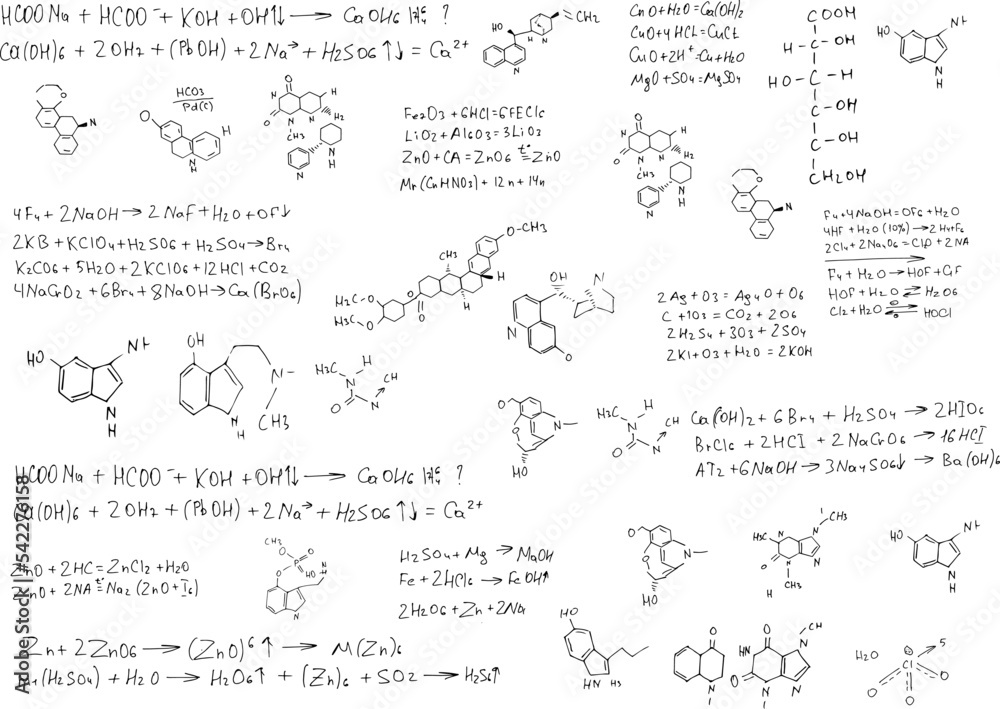 HCOO Na + HCOO⁻ + KOH + OH⇅ → CaOH6 ?
Ca(OH)6 + 2OH2 + (PbOH) + 2Na⁺ + H2SO6 ↑↓ = Ca²⁺
HO
N
CH2
H
N
CuO+4HCl=CuCt
CuO+2H⁺=Cu+H2O
MgO+SO4=MgSO4
COOH
H-C-OH
HO-C-H
C-OH
C-OH
CH2OH
HO
NH
N
H
O
N
HCO3
Pd(C)
O
H
N
H
O
N
H
O
N
H2
CH3
N
H
N
Fe2O3 + 6HCl=6FECl6
LiO2+Al6O3=3LiO3
ZnO+CA=ZnO6 t°= ZnO
Mn(CuHNO3)+12n+14n
O
N
H
O
N
H2
CH3
N
H
N
O
N
4F4 + 2NaOH→2NaF+H2O+OF↓
2KB+KClO4+H2SO6+H2SO4→Br4
K2CO6+5H2O+2KClO6+12HCl+CO2
4NaCrO2+6Br4+8NaOH→Ca(BrO6)
F4+4NaOH=OF6+H2O
4HF+H2O(10%)→2H4F6
F4+H2O→HOF+GF
HOF+H2O⇄H2O6
Cl2+H2O⇌HOCl
O-CH3
CH3
H
H
H
H3C-O
H3C-O
O
O
OH
N
N
O
2Ag+O3=Ag4O+O6
C+1O3=CO2+2O6
2H2S4+3O3+2SO4
2Kl+O3+H2O=2KOH
HO
NH
N
H
OH
N-
CH3
N
H
H3C
H
N
O
N
CH
O
N
O
HO
H3C
H
N
O
N
CH
Ca(OH)2+6Br4+H2SO4→2HIO6
BrCl6+2HCI+2NaCrO6→16HCI
AT2+6NaOH→3Na4SO6↓→Ba(OH)6
HCOO Na + HCOO⁻ + KOH + OH⇅ → CaOH6 ?
Ca(OH)6 + 2OH2 + (PbOH) + 2Na⁺ + H2SO6 ↑↓ = Ca²⁺
ZnO+2HC=ZnCl2+H2O
ZnO+2NA t°= Na2(ZnO+I6)
CH3
O
P
O
O
HO
N
H
N
H2SO4+Mg→MaOH
Fe+2HCl6→FeOH↑
2H2O6+Zn+2Na
O
O
N
HO
H3C
N
N
CH3
O
N
N
CH3
H
HO
NH
N
H
Zn+2ZnO6→(ZnO)⁶↑→M(Zn)6
(H2SO4)+H2O→H2O6↑+(Zn)6+SO2→H2S6↑
HO
HN
H3
O
N
O
HN
O
N
N
N
CH
H2O
Cl
5
O
O
O
Adobe Stock | #542276158
Adobe Stock